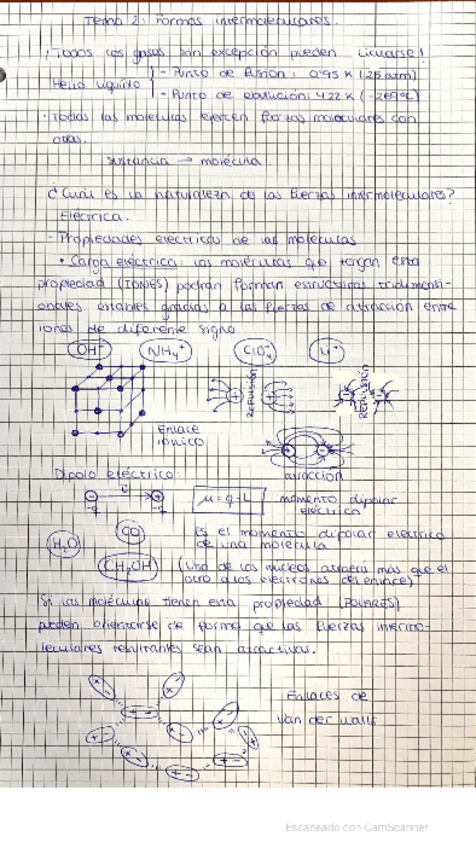 Tema 2: Formas intermoleculares.
¡Todos los gases sin excepción pueden licuarse!
Helio líquido
- Punto de fusión: 0.95 K (26 atm)
- Punto de ebullición: 4.22 K (-269ºC)
· Todas las moléculas ejercen fuerzas moleculares con
otras.
sustancia → molécula
¿Cuál es la naturaleza de las fuerzas intermoleculares?
Eléctrica.
- Propiedades eléctricas de las moléculas
• Carga eléctrica: las moléculas que tengan esta
propiedad (IONES) podrán forman estructuras tridimensi-
onales estables gracias a las fuerzas de atracción entre
iones de diferente signo
OH⁻ NH₄⁺ ClO₄⁻ Li⁺
REPULSIÓN
REPULSIÓN
Enlace
iónico
atracción
Dipolo eléctrico:
μ = q · L momento dipolar
eléctrico
H₂O CO CH₃OH
Es el momento dipolar eléctrico
de una molécula
(Uno de los núcleos atraerá más que el
otro a los electrones del enlace)
Si las moléculas tienen esta propiedad (POLARES)
pueden orientarse de forma que las fuerzas intermo-
leculares resultantes sean atractivas.
Enlaces de
Van der Walls
Escaneado con CamScanner